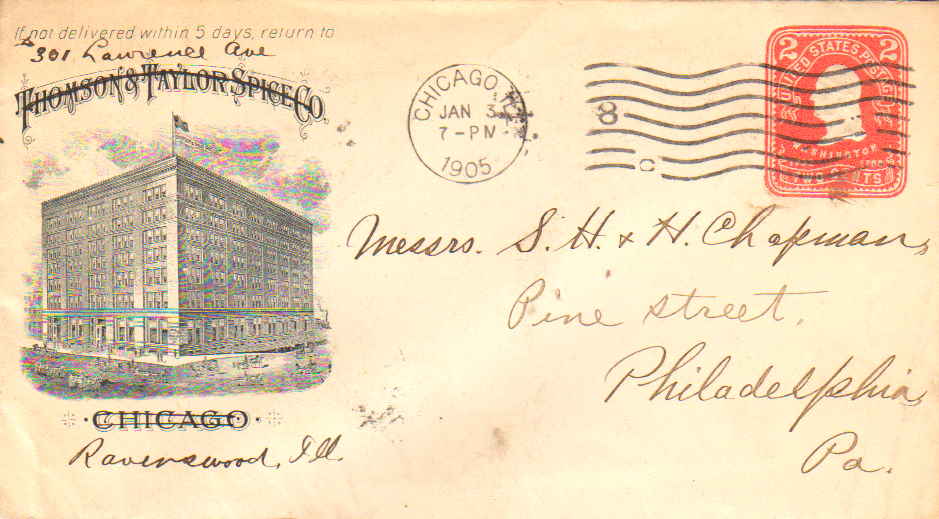 If not delivered within 5 days, return to
301 Lawrence Ave
THOMSON & TAYLOR SPICE CO.
CHICAGO
Ravenswood, Ill.
CHICAGO
JAN 3
7-PM
1905
8
C
2 UNITED STATES POSTAGE 2
WASHINGTON
Messrs. S. H. & H. Chapman,
Pine street,
Philadelphia,
Pa.